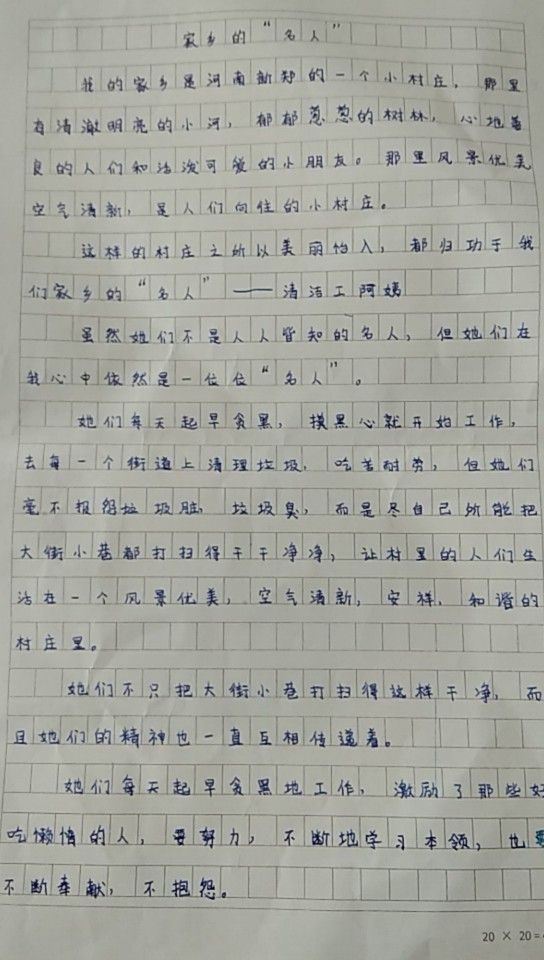 家乡的“名人”
我的家乡是河南新郑的一个小村庄，那里
有清澈明亮的小河，郁郁葱葱的树林，心地善
良的人们和活泼可爱的小朋友。那里风景优美
空气清新，是人们向往的小村庄。
这样的村庄之所以美丽怡人，都归功于我
们家乡的“名人”——清洁工阿姨
虽然她们不是人人皆知的名人，但她们在
我心中依然是一位位“名人”。
她们每天起早贪黑，摸黑心就开始工作，
去每一个街道上清理垃圾，吃苦耐劳，但她们
毫不抱怨垃圾脏，垃圾臭，而是尽自己所能把
大街小巷都打扫得干干净净，让村里的人们生
活在一个风景优美，空气清新，安祥，和谐的
村庄里。
她们不只把大街小巷打扫得这样干净，而
且她们的精神也一直互相传递着。
她们每天起早贪黑地工作，激励了那些好
吃懒惰的人，要努力，不断地学习本领，也要
不断奉献，不抱怨。
20 × 20 =